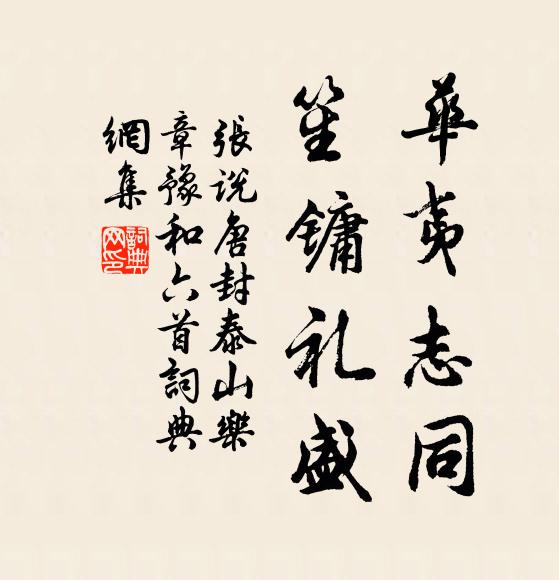 華夷志同
笙鏞礼盛
張說唐封泰山樂
章豫和六首詞典
網集
詞典网印